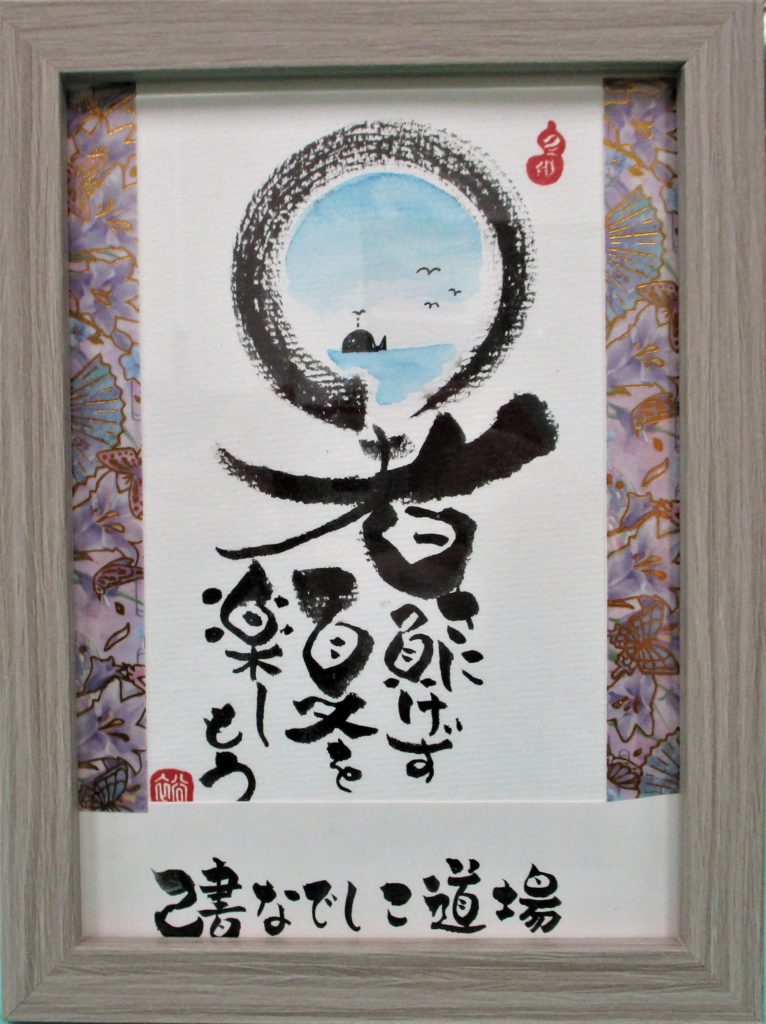 暑
さに
負けず
夏を
楽しもう
己書なでしこ道場